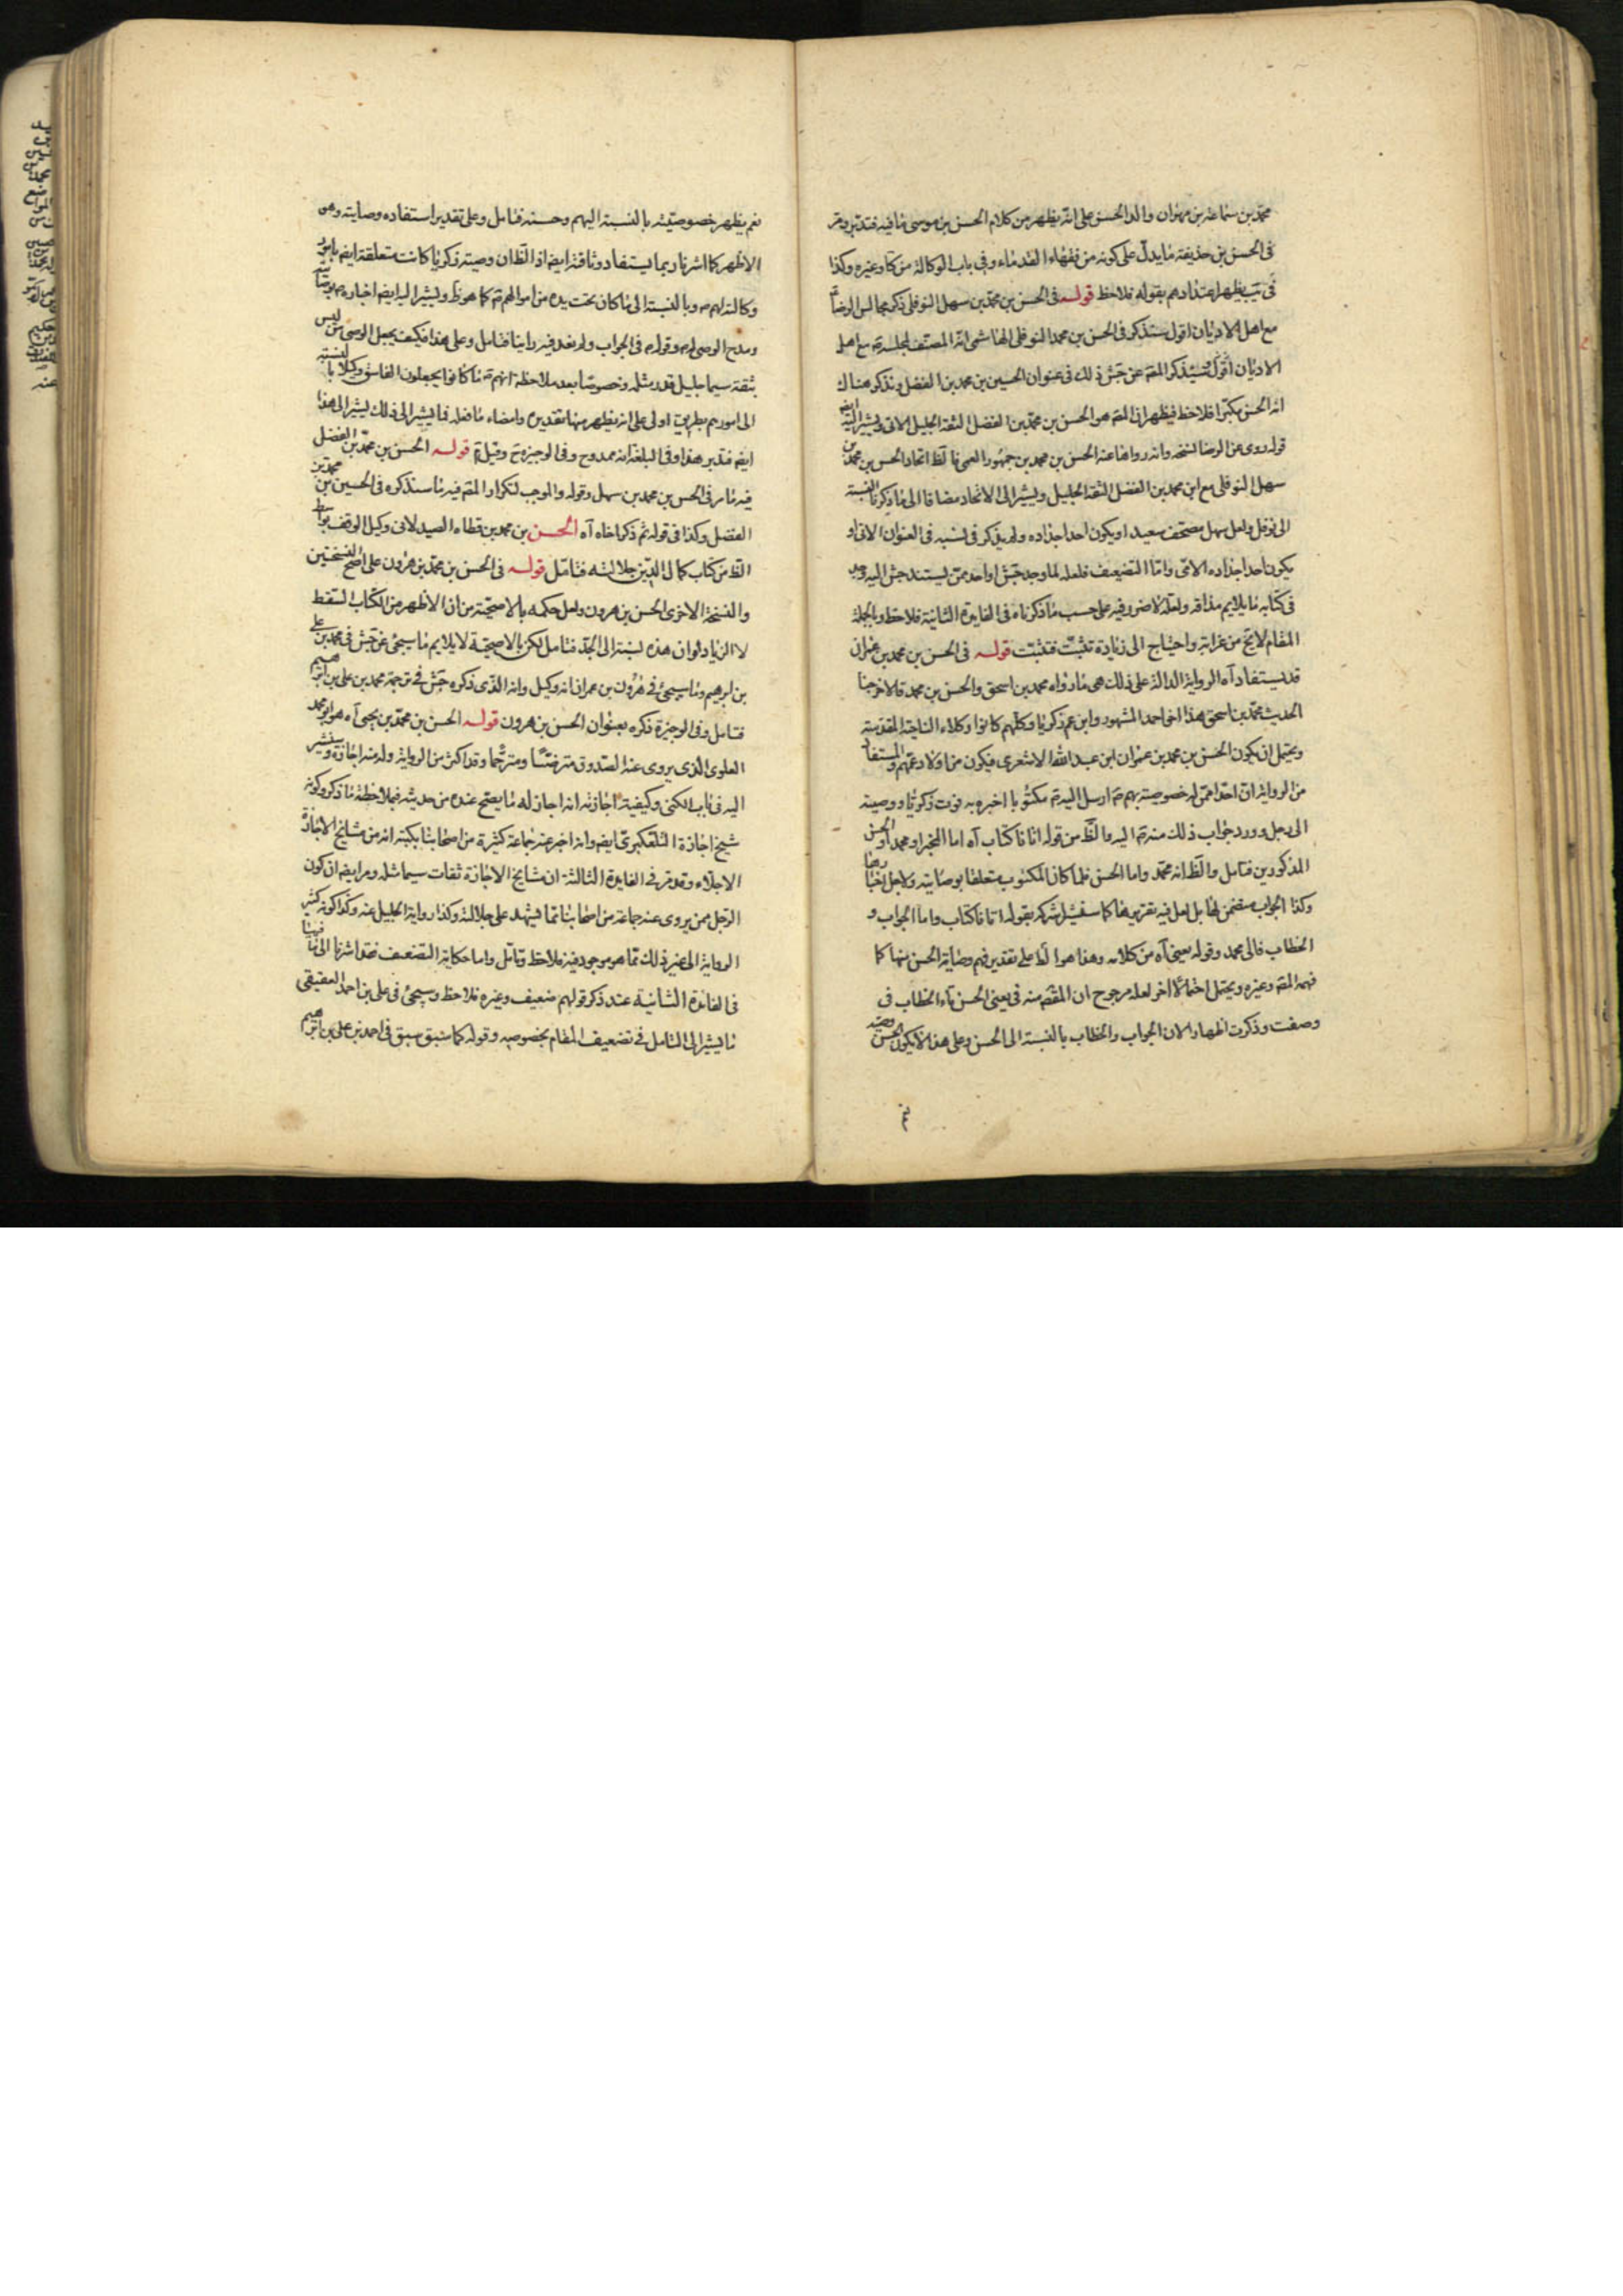 محمد بن سماعة بن مهران والد الحسن على انه يظهر من كلام الحسن بن موسى ما فيه فتدبر ومر
فى الحسن بن حذيفة ما يدل على كونه من فقهاء القدماء وفى باب الوكالة من كا وغيره وكذا
فى يب يظهر اعتدادهم بقوله فلاحظ قوله فى الحسن بن محمد بن سهل النوفلى ذكر مجالس الرضا
مع اهل الاديان اقول سنذكر فى الحسن بن محمد النوفلى الهاشمى انه المصنف لمجلسه مع اهل
الاديان اقول سيذكر المصه عن جش ذلك فى عنوان الحسين بن محمد بن الفضل ونذكر هناك
انه الحسن مكبرا فلاحظ فيظهر ان المصه هو الحسن بن محمد بن الفضل الثقة الجليل الاتى ويشير اليه ايضا
قوله روى عن الرضا نسخة وانه رواها عنه الحسن بن محمد بن جمهور العمى فالظ اتحاد الحسن بن محمد بن
سهل النوفلى مع ابن محمد بن الفضل الثقة الجليل ويشير الى الاتحاد مضافا الى ما ذكرنا النسبة
الى نوفل ولعل سهل مصحف سعيد او يكون احد اجداده ولم يذكر فى نسبه فى العنوان الاتى او
يكون احد اجداده الاتى واما التضعيف فلعله لما وجد جش او احد ممن يستند جش اليه وجد
فى كتابه ما يلايم مذاقه ولعله لا ضرر فيه على حسب ما ذكرناه فى الفايدة الثانية فلاحظ وبالجملة
المقام لا يخ من غرابة واحتياج الى زيادة تثبت فتثبت قوله فى الحسن بن محمد بن عمران
قد يستفاد آه الرواية الدالة على ذلك هى ما رواه محمد بن اسحق والحسن بن محمد قالا خرجنا
الحديث محمد بن اسحق هذا اخى احمد المشهور وابن عم زكريا وكلهم كانوا وكلاء الناحية المقدسة
ويحتمل ان يكون الحسن بن محمد بن عمران ابن عبد الله الاشعرى فيكون من اولاد عمهم والمستفاد
من الرواية ان احدا ممن له خصوصية بهم ع ارسل اليه ع مكتوبا اخبره به فوت زكريا ووصيته
الى رجل وورد جواب ذلك منه ع اليه والظ من قوله اتانا كتاب آه اما المخبر او محمد او الحسن
المذكورين فتامل والظ انه محمد واما الحسن فلما كان المكتوب متعلقا بوصايته ولاجل اخبارها
وكذا الجواب متضمن لها بل لعل فيه تقريرها كما سنشير شركه بقوله اتانا كتاب واما الجواب و
الخطاب فالى محمد وقوله يعنى آه من كلامه وهذا هو الظ على تقدير فهم وصاية الحسن منها كما
فهمه المصه وغيره ويحتمل احتمالا اخر لعله مرجوح ان المقصه منه فى يعنى الحسن تاء الخطاب فى
وصفت وذكرت اظهارا لان الجواب والخطاب بالنسبة الى الحسن وعلى هذا لا يكون الحسن وصيه
نعم يظهر خصوصيته بالنسبة اليهم وحسنه فتامل وعلى تقدير استفاده وصايته وهو
الاظهر كما اشرنا ربما يستفاد وثاقته ايضه اذ الظ ان وصية زكريا كانت متعلقة ايضه بامور
وكالته لهم ع وبالنسبة الى ما كان تحت يده من اموالهم ع كما هو ظ ويشير اليه ايضه اخباره ع
ومدح الوصى له ع وقوله ع فى الجواب ولم نعد فيه راينا فتامل وعلى هذا فكيف يجعل الوصى من ليس
بثقة سيما جليل قدر مثله وخصوصا بعد ملاحظة انهم ع ما كانوا يجعلون الفاسق وكيلا بالنسبة
الى امورهم بطريق اولى على انه يظهر منها تقديره وامضاء ما فعله فتا يشير الى ذلك يشير الى هذا
ايضه فتدبر هذا وفى البلغة انه ممدوح وفى الوجيزة ح وقيل م قوله الحسن بن محمد بن الفضل
فيه ما مر فى الحسن بن محمد بن سهل وقوله والموجب لتكرار المصه فيه ما سنذكره فى الحسين بن محمد بن
الفضل وكذا فى قوله ثم ذكر اخاه آه الحسن بن محمد بن قطاه الصيدلانى وكيل الوقف بواسط
الظ من كتاب كمال الدين جلالته فتامل قوله فى الحسن بن محمد بن هرون على اصح النسختين
والنسخة الاخرى الحسن بن هرون ولعل حكمه بالاصحية من ان الاظهر من الكتاب السقط
لا الزيادة وان هذه نسبة الى الجد فتامل لكن بالاصحية لا يلايم ما سيجئ عن جش فى محمد بن على
بن ابرهيم وما سيجئ فى هرون بن عمران انه وكيل وانه الذى ذكره جش فى ترجمة محمد بن على بن ابرهيم
فتامل وفى الوجيزة ذكره بعنوان الحسن بن هرون قوله الحسن بن محمد بن يحيى آه هو ابو محمد
العلوى الذى يروى عنه الصدوق مترضيا ومترحما وقد اكثر من الرواية وله منه اجازة وسنشير
اليه فى باب الكنى وكيفية اجازته انه اجاز له ما يصح عنده من حديثه فبملاحظة ما ذكر وكونه
شيخ اجازة التلعكبرى ايضه وانه اخبر عنه جماعة كثيرة من اصحابنا بكتبه انه من مشايخ الاجازة
الاجلاء وقد مر فى الفايدة الثالثة ان مشايخ الاجازة ثقات سيما مثله ومر ايضه ان كون
الرجل ممن يروى عنه جماعة من اصحابنا مما يشهد على جلالته وكذا رواية الجليل عنه وكذا كونه كثير
الرواية الى غير ذلك مما هو موجود فيه فلاحظ وتامل واما حكاية التضعيف فقد اشرنا الى ما فيها
فى الفائدة الثانية عند ذكر قولهم ضعيف وغيره فلاحظ وسيجئ فى على بن احمد العقيقى
ما يشير الى التامل فى تضعيف المقام بخصوصه وقوله كما سبق سبق فى احمد بن على بن ابرهيم